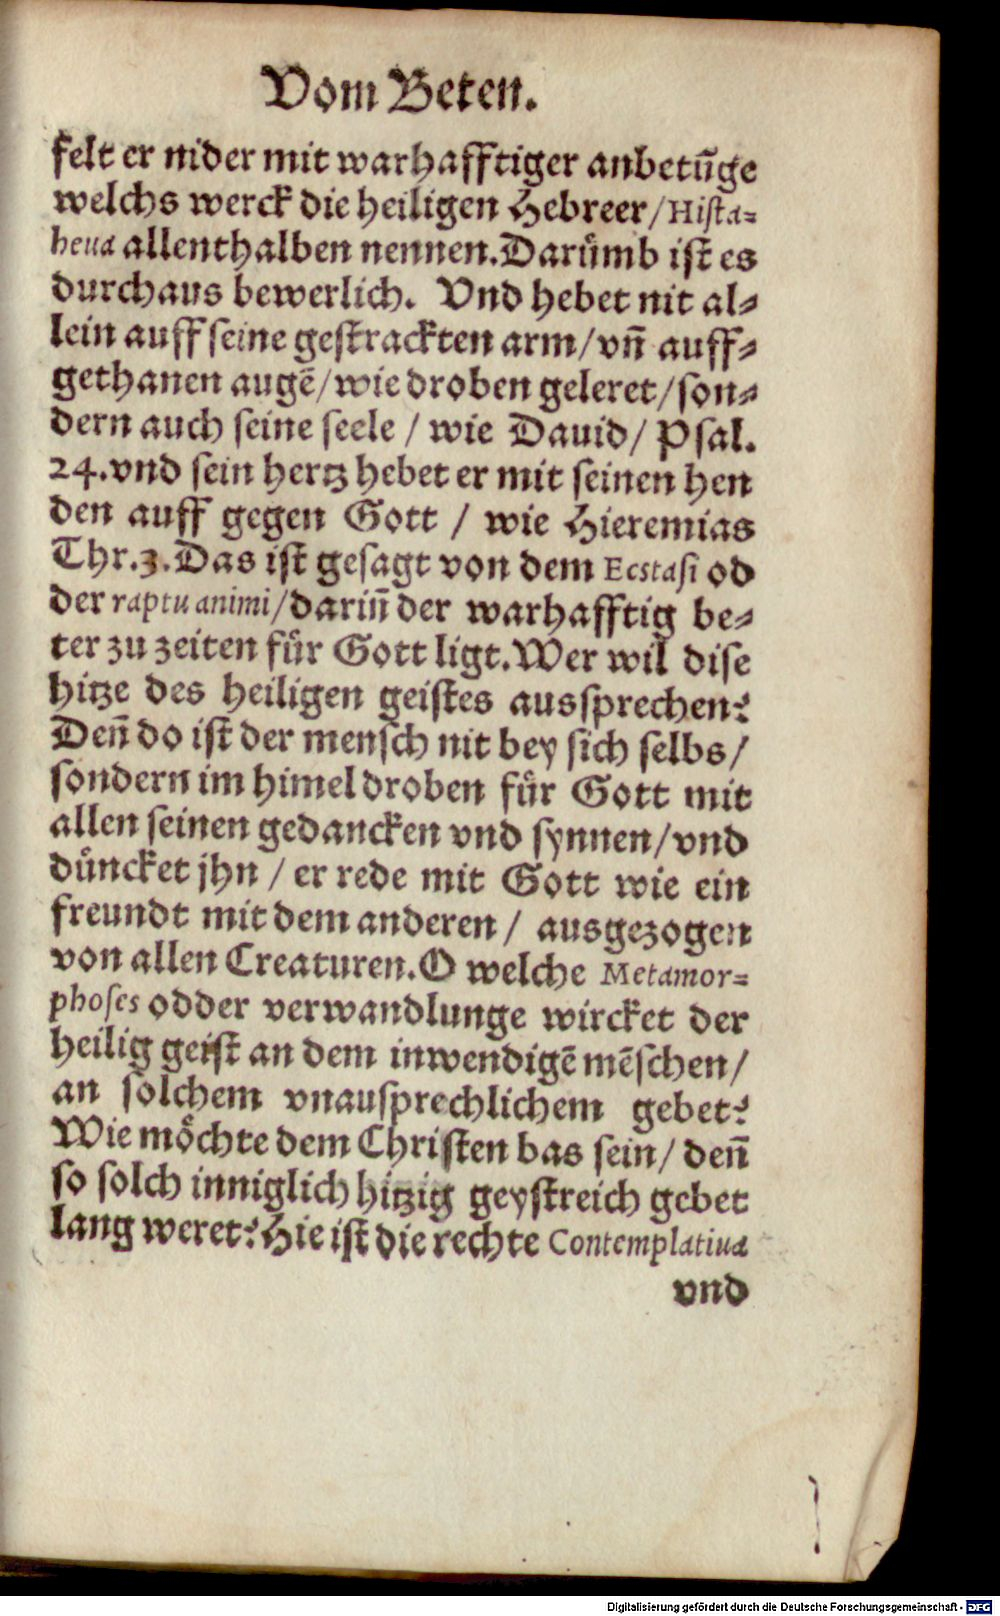 Vom Beten.
felt er nider mit warhafftiger anbetūge
welchs werck die heiligen Hebreer/Hista-
heua allenthalben nennen.Darümb ist es
durchaus bewerlich. Vnd hebet nit al-
lein auff seine gestrackten arm/vn̄ auff-
gethanen augē/wie droben geleret/son-
dern auch seine seele / wie Dauid/ Psal.
24.vnd sein hertz hebet er mit seinen hen
den auff gegen Gott / wie Hieremias
Thr.3.Das ist gesagt von dem Ecstasi od
der raptu animi/darin̄ der warhafftig be-
ter zu zeiten für Gott ligt.Wer wil dise
hitze des heiligen geistes aussprechen?
Den̄ do ist der mensch nit bey sich selbs/
sondern im himel droben für Gott mit
allen seinen gedancken vnd synnen/vnd
düncket jhn / er rede mit Gott wie ein
freundt mit dem anderen / ausgezogen
von allen Creaturen.O welche Metamor-
phoses odder verwandlunge wircket der
heilig geist an dem inwendigē mēschen/
an solchem vnausprechlichem gebet?
Wie möchte dem Christen bas sein/ den̄
so solch inniglich hitzig geystreich gebet
lang weret?Hie ist die rechte Contemplatiua
vnd
Digitalisierung gefördert durch die Deutsche Forschungsgemeinschaft - DFG